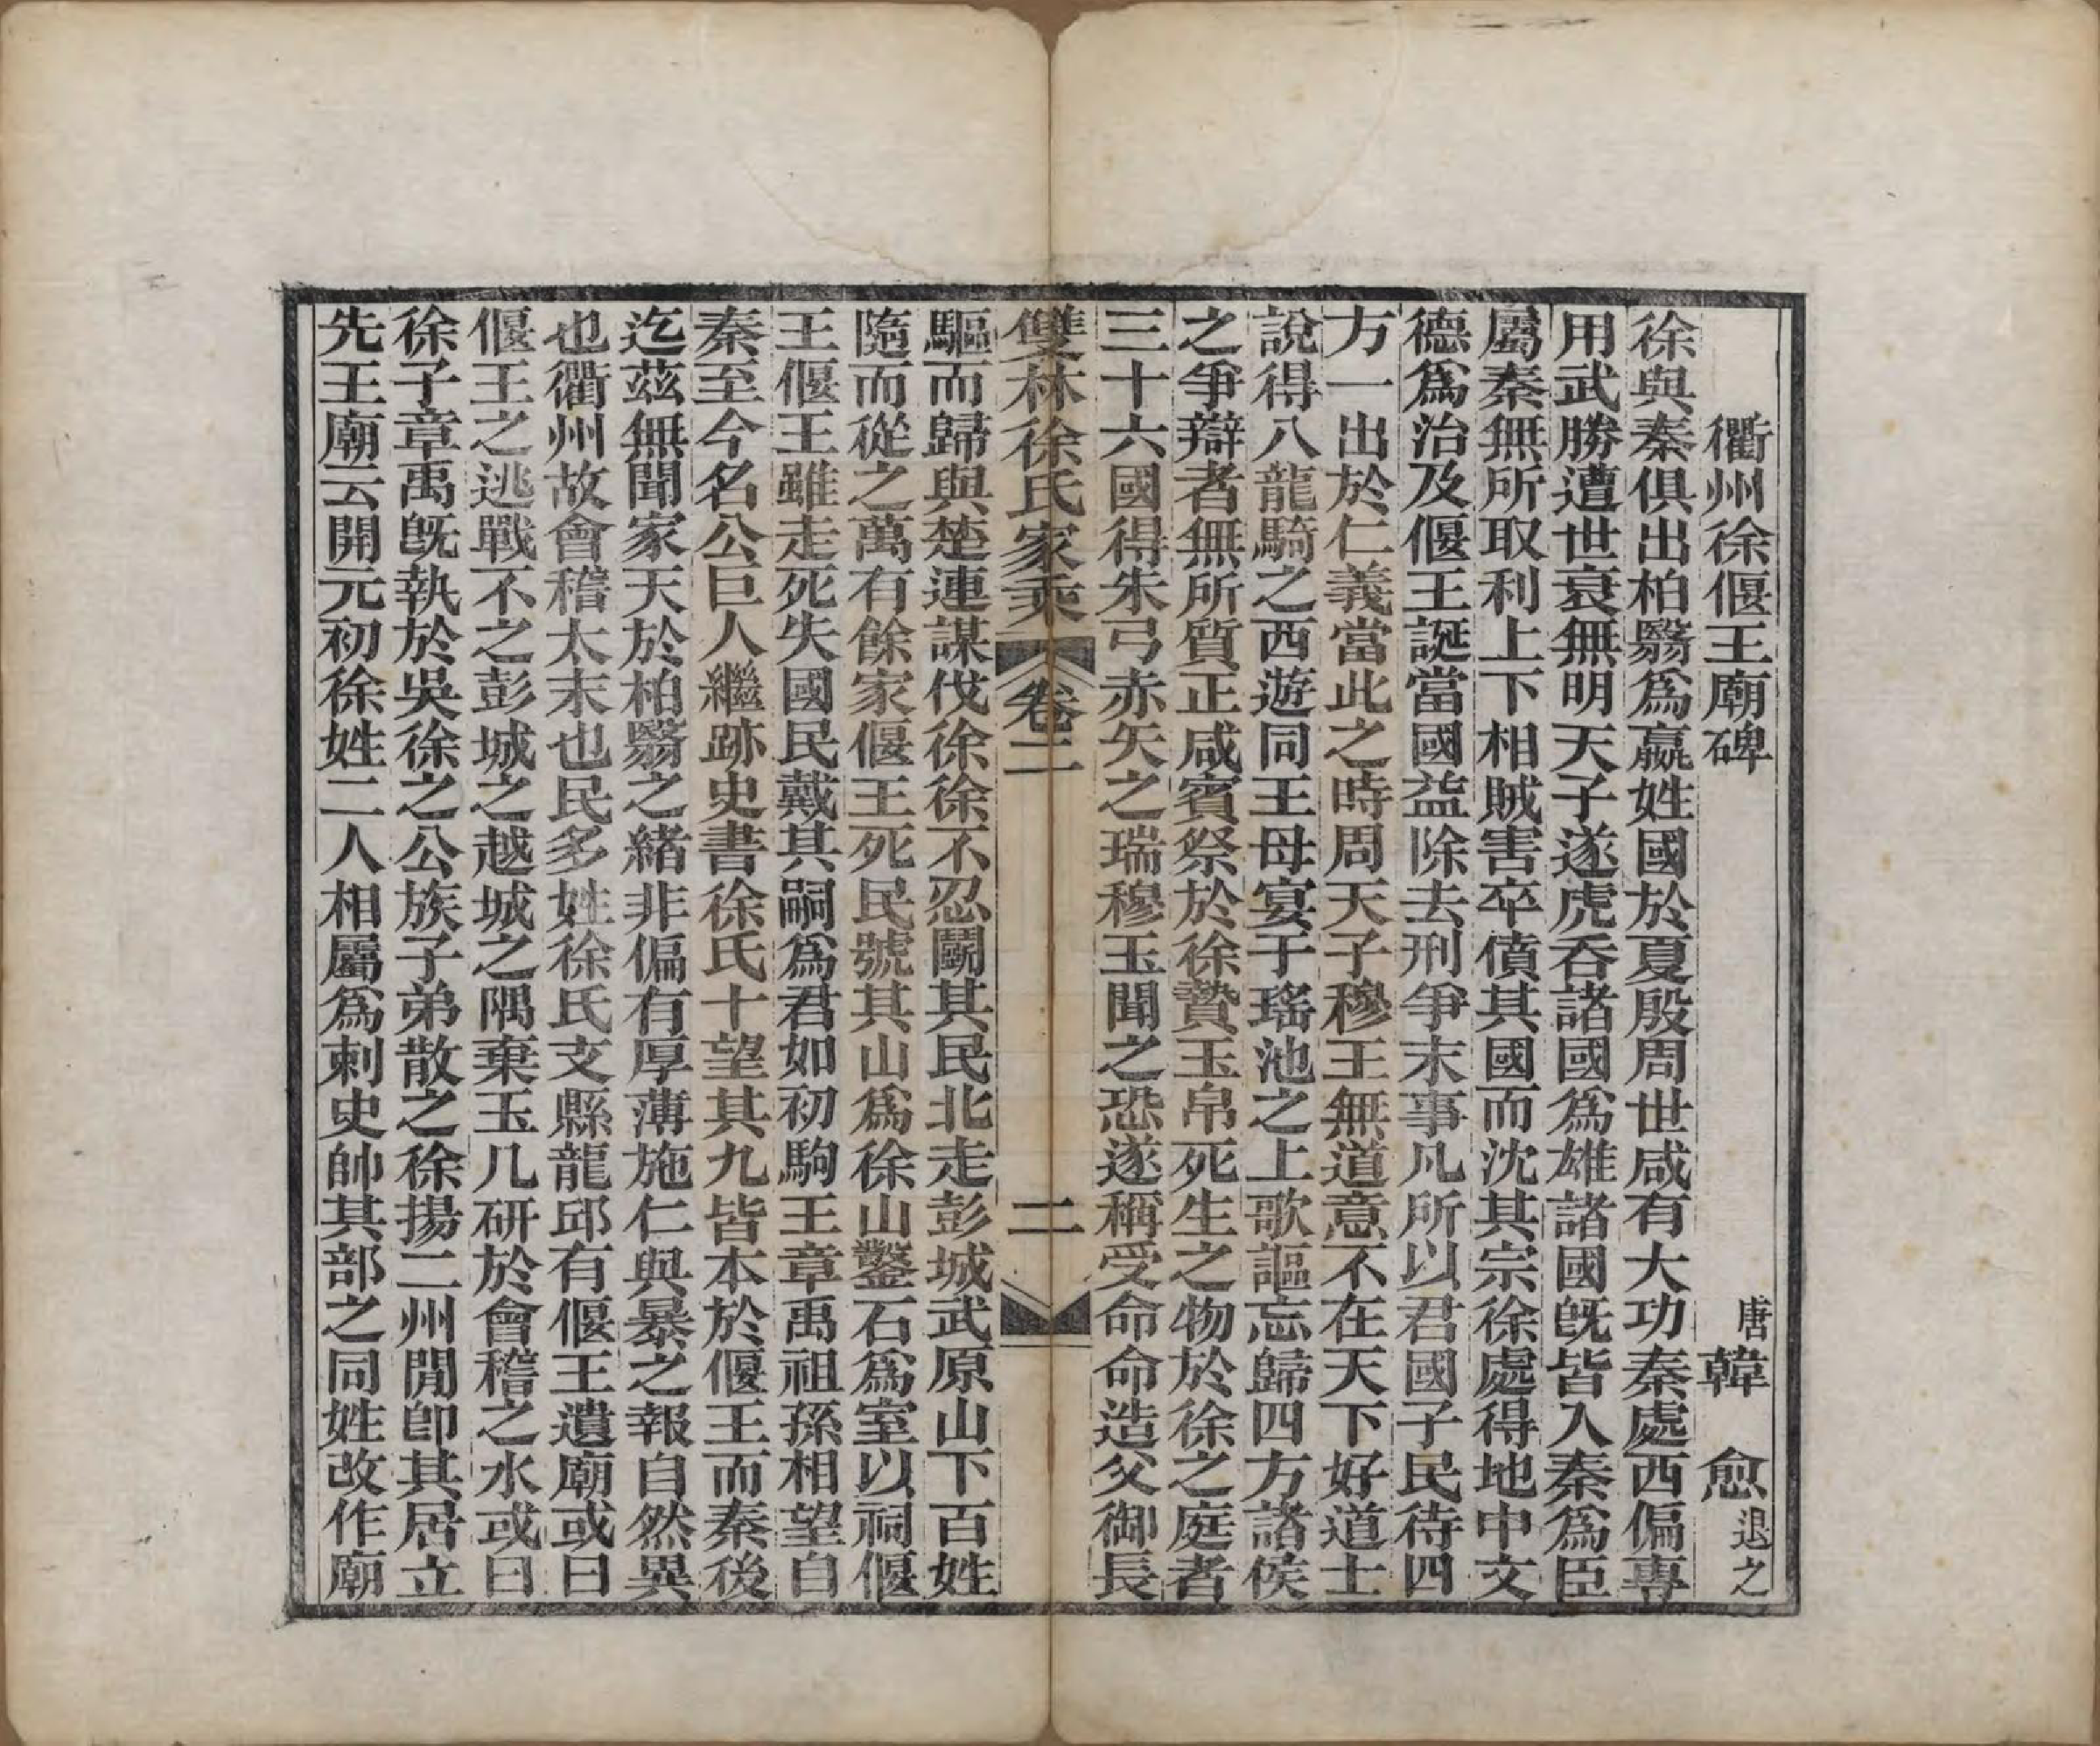 衢州徐偃王廟碑 唐韓愈退之
徐與秦俱出柏翳爲嬴姓國於夏殷周世咸有大功秦處西偏專
用武勝遭世衰無明天子遂虎吞諸國爲雄諸國旣皆入秦爲臣
屬秦無所取利上下相賊害卒僨其國而沈其宗徐處得地中文
德爲治及偃王誕當國益除去刑爭末事凡所以君國子民待四
方一出於仁義當此之時周天子穆王無道意不在天下好道士
說得八龍騎之西遊同王母宴于瑤池之上歌謳忘歸四方諸侯
之爭辯者無所質正咸賓祭於徐贄玉帛死生之物於徐之庭者
三十六國得朱弓赤矢之瑞穆王聞之恐遂稱受命命造父御長
雙林徐氏家乘 卷二 二
驅而歸與楚連謀伐徐徐不忍鬭其民北走彭城武原山下百姓
隨而從之萬有餘家偃王死民號其山爲徐山鑿石爲室以祠偃
王偃王雖走死失國民戴其嗣爲君如初駒王章禹祖孫相望自
秦至今名公巨人繼跡史書徐氏十望其九皆本於偃王而秦後
迄茲無聞家天於柏翳之緖非偏有厚薄施仁與暴之報自然異
也衢州故會稽太末也民多姓徐氏支縣龍邱有偃王遺廟或曰
偃王之逃戰不之彭城之越城之隅棄玉几研於會稽之水或曰
徐子章禹旣執於吳徐之公族子弟散之徐揚二州閒卽其居立
先王廟云開元初徐姓二人相屬爲刺史帥其部之同姓改作廟